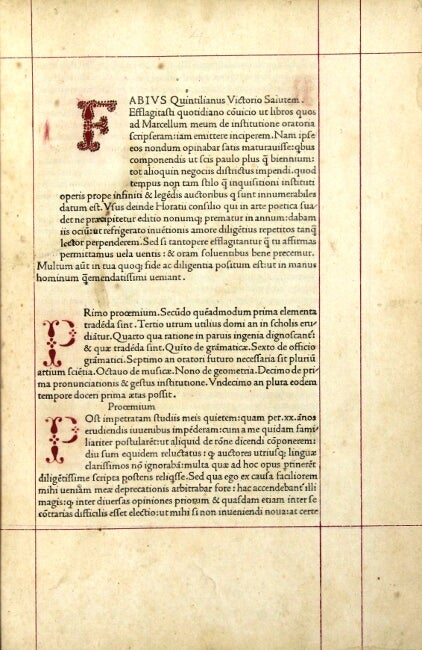 FABIVS Quintilianus Victorio Salutem.
Efflagitasti quotidiano cōuicio ut libros quos
ad Marcellum meum de institutione oratoria
scripseram: iam emittere inciperem. Nam ipse
eos nondum opinabar satis maturauisse: qbus
componendis ut scis paulo plus q̄ biennium:
tot alioquin negociis districtus impendi. quod
tempus non tam stilo q̄ inquisitioni instituti
operis prope infiniti & legēdis auctoribus q sunt innumerabiles
datum est. Vsus deinde Horatii consilio qui in arte poetica sua
det ne præcipitetur editio nonumq; prematur in annum: dabam
iis ociū: ut refrigerato inuētionis amore diligētius repetitos tanq̄
lector perpenderem. Sed si tantopere efflagitantur q̄ tu affirmas
permittamus uela uentis: & oram soluentibus bene precemur.
Multum aūt in tua quoq; fide ac diligentia positum est: ut in manus
hominum q̄emendatissimi ueniant.
PRimo prooemium. Secūdo quēadmodum prima elementa
tradēda sint. Tertio utrum utilius domi an in scholis eru
diātur. Quarto qua ratione in paruis ingenia dignoscant᷑
& quæ tradēda sint. Quīto de grāmatica. Sexto de officio
grāmatici. Septimo an oratori futuro necessaria sit pluriū
artium sciētia. Octauo de musica. Nono de geometria. Decimo de pri
ma pronunciationis & gestus institutione. Vndecimo an plura eodem
tempore doceri prima ætas possit.
Prooemium
POst impetratam studiis meis quietem: quam per .xx. ānos
erudiendis iuuenibus impēderam: cum a me quidam fami
liariter postularēt: ut aliquid de rōne dicendi cōponerem:
diu sum equidem reluctatus: q auctores utriusq; linguæ
clarissimos nō ignorabā: multa quæ ad hoc opus prinerēt
diligētissime scripta posteris reliqsse. Sed qua ego ex causa faciliorem
mihi ueniā meæ deprecationis arbitrabar fore: hac accendebant᷑ illi
magis: q inter diuersas opiniones priorum & quasdam etiam inter se
cōtrarias difficilis esset electio: ut mihi si non inueniendi noua: at certe